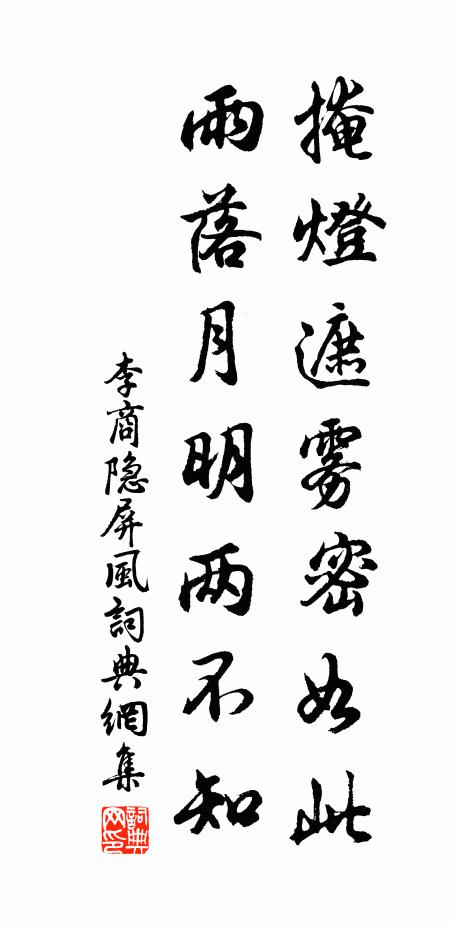 掩燈遮雾密如此
雨落月明两不知
李商隐屏風詞典網集
詞典网印